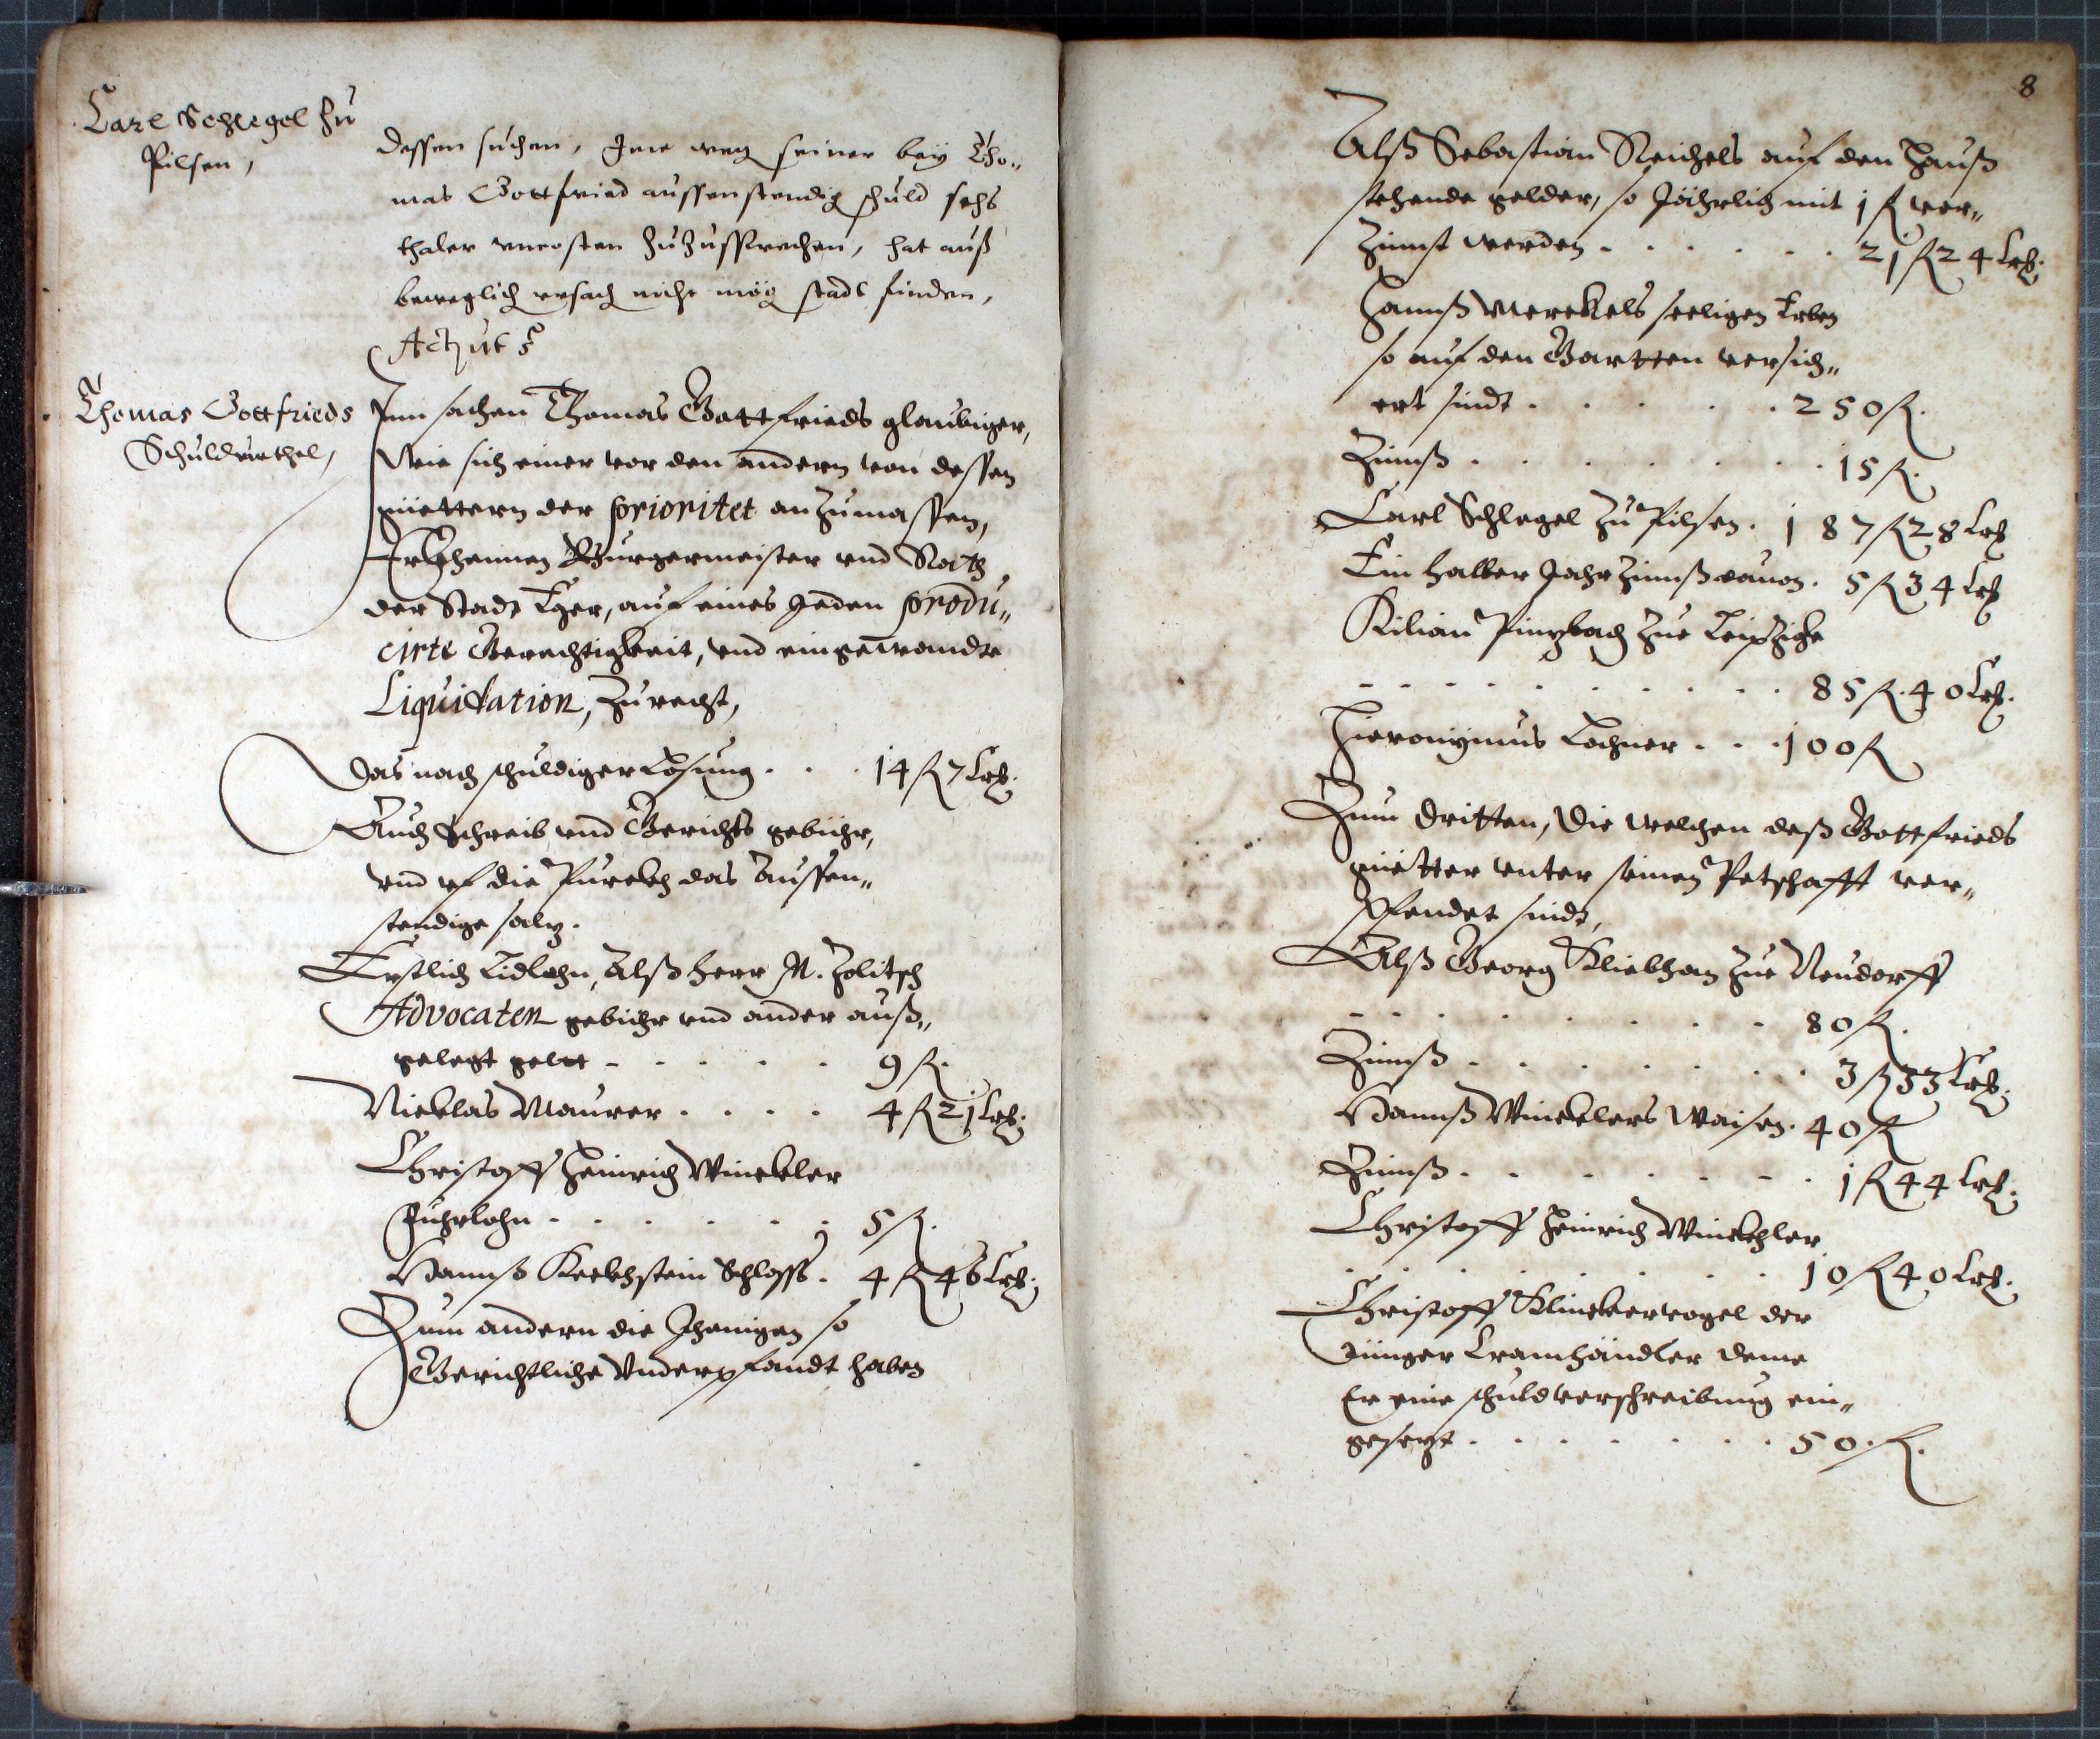 Carl Schlegel zu
Pilsen,
dessen suchen, Ime weg seiner bey Tho„
mas Gottfried aussenstendig schuld sechs
thaler vncosten zuzusprechen, hat auß
beweglich vrsach nicht mög stadt finden,
Act: ut s
Thomas Gottfrieds
Schuldvrthel,
Inn sachen Thomas Gottfrieds glaubiger,
Wie sich einer vor den andern von dessen
güettern der prioritet anzumassen,
Erkhennen Burgermeister vnd Rath
der Stadt Eger, auf eines Jeden produ„
cirte Gerechtigkeit, vnd eingewandte
Liquidation, zu recht,
Das nach schuldiger Losung . . . 14 fl 7 Krz.
Auch Schreib vnd Gerichts gebühr,
vnd vf die das Aussen„
stendige salz.
Erstlich Lidlohn, Alß Herr M. Zolitsch
Advocaten gebühr vnd ander auß„
gelegt gelt . . . . . 9 fl.
Nicklas Maurer . . . . 4 fl 21 Krz.
Christoff Heinrich Winckler
Fuhrlohn . . . . . . 5 fl.
Hannß Keckhstein Schloss. . 4 fl 46 Krz.
Zum andern die Jhenigen so
Gerichtliche Vnderpfandt haben
8
Alß Sebastian Reichels auf den Hauß
stehende gelder, so Jährlich mit 1 fl ver„
Zinnst werden . . . . . . 21 fl 24 Krz.
Hannß Merckels seeligen Erben
so auf den Gartten versich„
ert sindt . . . . . . 250 fl.
Zinnß . . . . . . . . 15 fl.
Carl Schlegel zu Pilsen. 187 fl 28 Krz
Ein halber Jahr Zinnß dauon. 5 fl 34 Krz
Kilian zue Leipzigk
. . . . . . . . . . 85 fl. 40 Krz.
Hieronymus Lochner . . . 100 fl
Zum dritten, Die welchen deß Gottfrieds
güetter vnter seinen Petschafft ver„
pfendet sindt,
Alß Georg Kliebhan zue Neudorff
. . . . . . . . . . 80 fl.
Zinnß . . . . . . . . 3 fl 33 Krz.
Hannß Wincklers Waisen. 40 fl
Zinnß . . . . . . . . 1 fl 44 Krz.
Christoff Heinrich Winckhler
. . . . . . . . . 10 fl 40 Krz.
Christoff Klinckervogel der
Jünger Cramhändler deme
Er eine schuldverschreibung ein„
gesezt . . . . . . . . 50. fl.